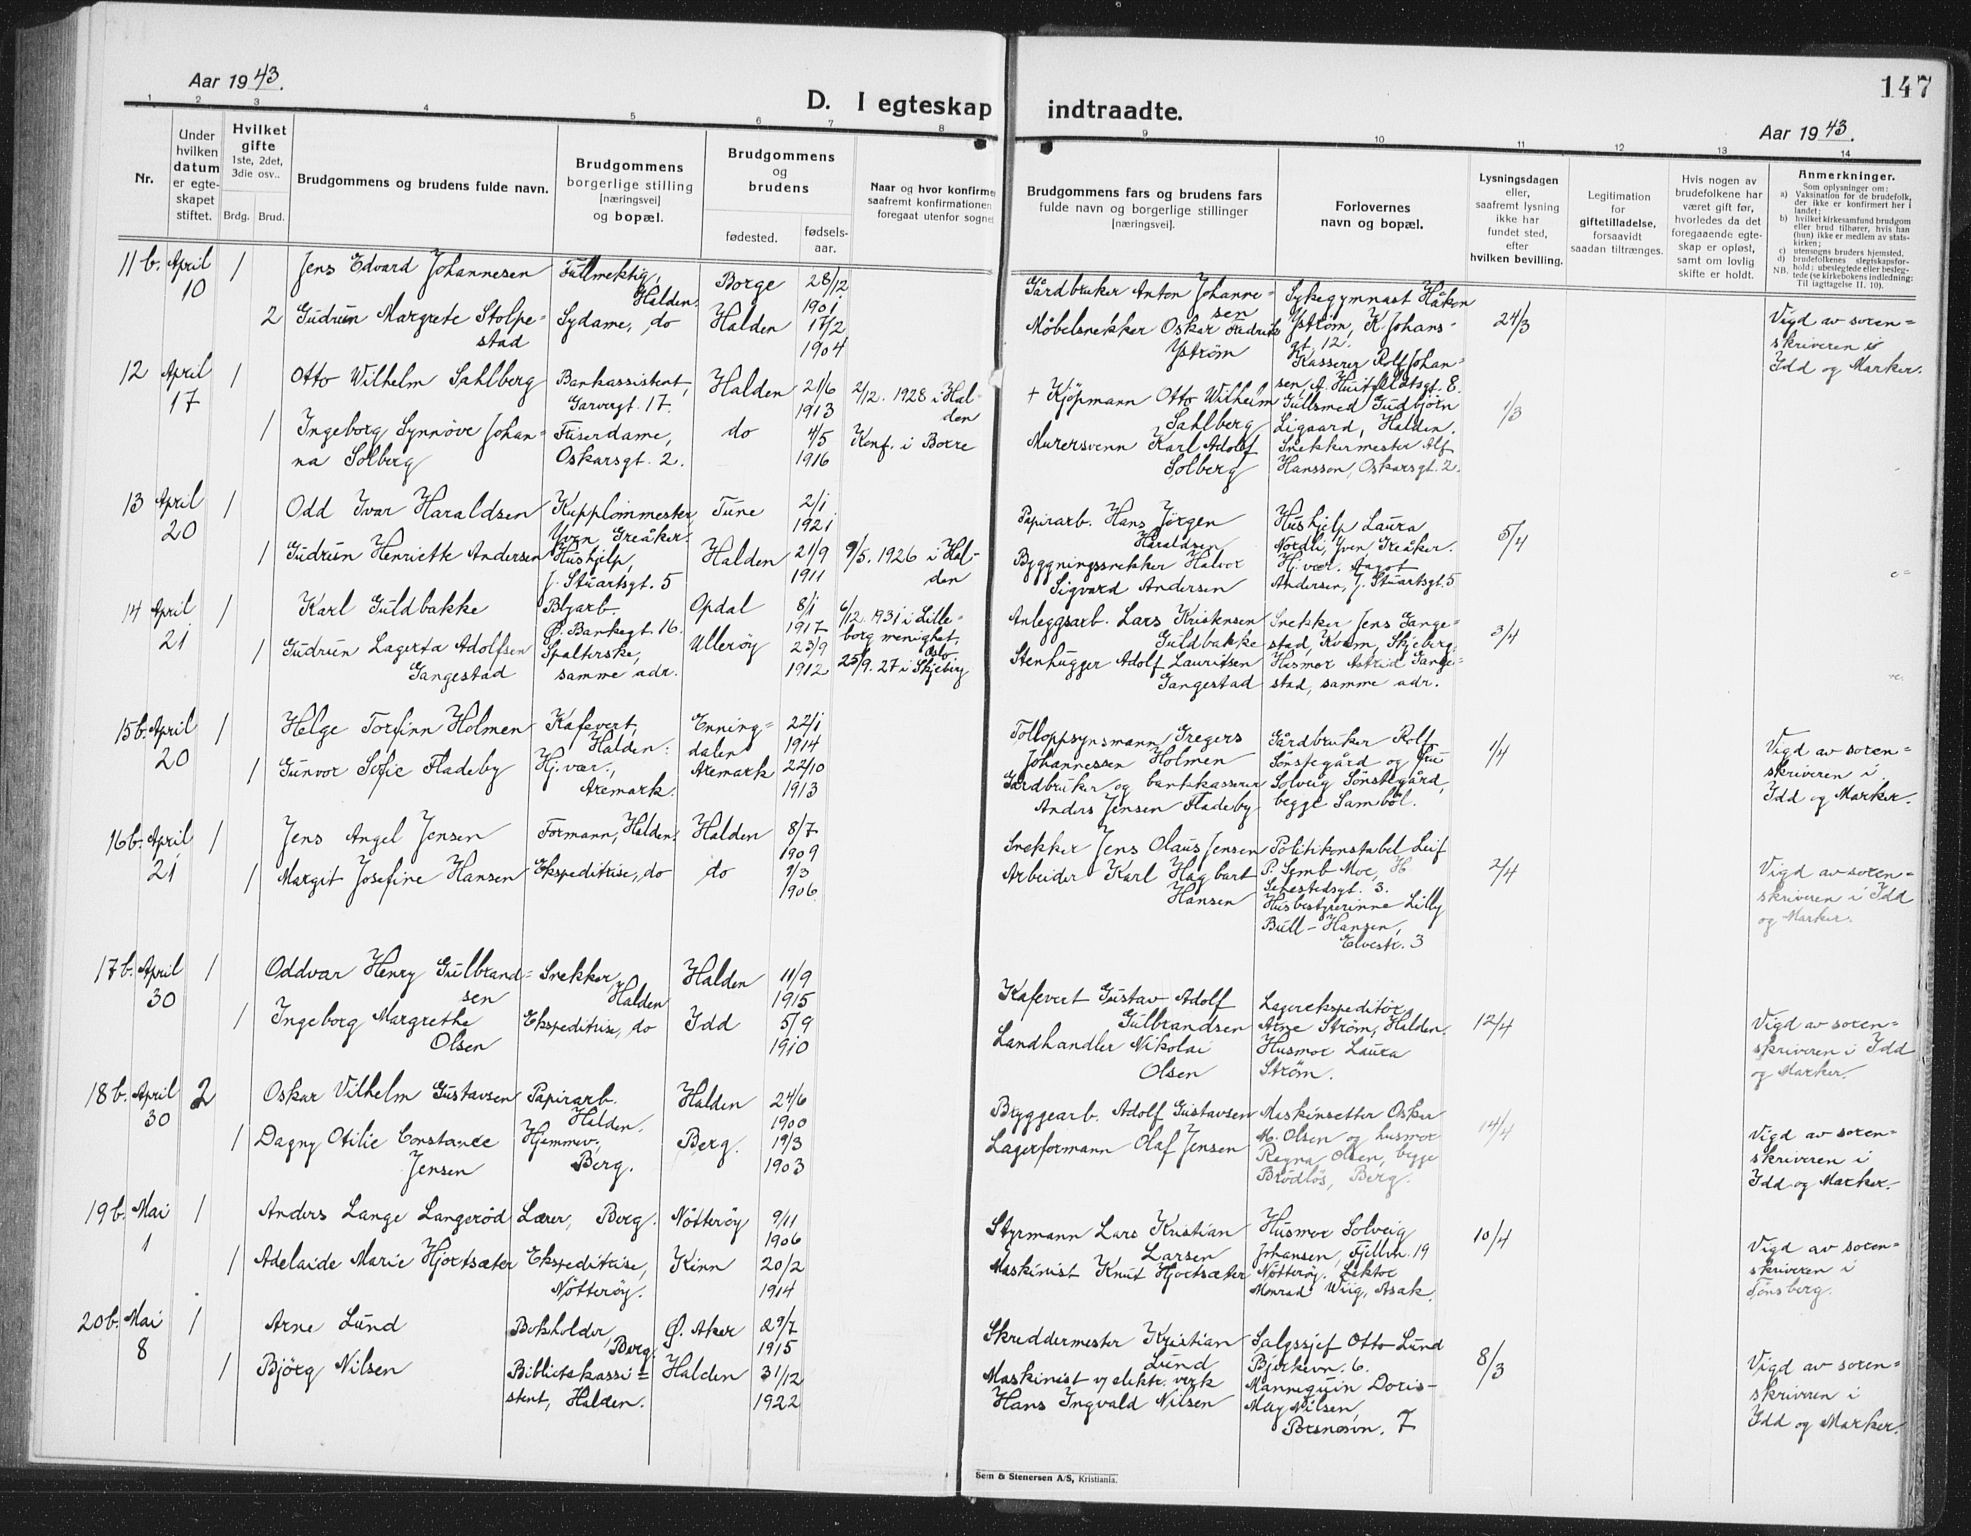 Aar 1943.
D. I egteskap indtraadte.
147
Aar 1943.
1 2 3 4 5 6 7 8 9 10 11 12 13 14
Nr.
Under hvilken datum er egteskapet stiftet.
Hvilket gifte
1ste, 2det, 3die osv..
Brdg. Brud.
Brudgommens og brudens fulde navn.
Brudgommens borgerlige stilling [næringsvei] og bopæl.
Brudgommens og brudens
fødested.
fødsels-aar.
Naar og hvor konfirme
saafremt konfirmationen
foregaat utenfor sogne
Brudgommens fars og brudens fars
fulde navn og borgerlige stillinger
[næringsvei].
Forlovernes
navn og bopæl.
Lysningsdagen
eller,
saafremt lysning
ikke har
fundet sted,
efter
hvilken bevilling.
Legitimation
for
giftetilladelse,
forsaavidt
saadan tiltrænges.
Hvis nogen av
brudefolkene har
været gift før,
hvorledes da det
foregaaende egte-
skap er opløst,
samt om lovlig
skifte er holdt.
Anmerkninger.
Som oplysninger om:
a) Vaksination for de brudefolk,
der ikke er konfirmert her i
landet;
b) hvilket kirkesamfund brudgom
eller brud tilhører, hvis han
(hun) ikke er medlem av stats-
kirken;
c) utensogns bruders hjemsted.
d) brudefolkenes slegtskapsfor-
hold: ubeslegtede eller besleg-
NB. tede (se kirkebokens indledning:
Til iagttagelse II. 10).
11 b. April 10 1 Jens Edvard Johannesen Fullmektig, Halden. Borge 28/12 1901
Gårdbruker Anton Johanne=
sen
Sykegymnast Håkon
Ystrøm, K. Johans-
gt. 12.
24/3
2 Gudrun Margrete Stolpe=
stad
Sydame, do Halden 17/2 1904
Møbelsnekker Oskar Fredrik
Ystrøm
Kasserer Rolf Johan-
sen, A. Huitfeldtsgt. 8.
Vigd av soren=
skriveren i
Idd og Marker.
12 April 17 1 Otto Wilhelm Sahlberg Bankassistent, Garvergt. 17. Halden 21/6 1913 2/12. 1928 i Hal-
den
+ Kjøpmann Otto Wilhelm
Sahlberg
Gullsmed Gudbjørn
Ligaard, Halden.
1/3
1 Ingeborg Synnøve Johan=
na Solberg
Frisérdame,
Oskarsgt. 2. do 4/5 1916 Konf. i Borre
Murersvenn Karl Adolf
Solberg
Snekkermester Alf
Hansson, Oskarsgt. 2.
13 April 20 1 Odd Ivar Haraldsen Kupplommester,
Yven Greåker. Tune 2/1 1921
Papirarb. Hans Jørgen
Haraldsen
Hushjelp Laura
Nordli, Yven Greåker.
5/4
1 Gudrun Henriette Andersen Hushjelp,
J. Stuartsgt. 5 Halden 21/9 1911 9/5. 1926 i Hal-
den
Byggningssnekker Halvor
Sigvard Andersen
Hj.vær. Aagot
Andersen, J. Stuartsgt. 5
14 April 21 1 Karl Guldbakke Blyarb.
Ø. Bankegt. 16. Opdal 8/1 1917 6/12. 1931 i Lille=
borg menighet,
Oslo
Anleggsarb. Lars Kristensen
Guldbakke
Snekker Jens Gange=
stad, Kvom, Skjeberg.
3/4
1 Gudrun Lagerta Adolfsen
Gangestad
Spalterske,
samme adr. Ullerøy 23/9 1912 25/9. 27 i Skjeberg
Stenhugger Adolf Lauritsen
Gangestad
Husmor Astrid Gange=
stad, samme adr.
15 b. April 20 1 Helge Torfinn Holmen Kafevert,
Halden. Enning=
dalen 22/1 1914
Tolloppsynsmann Gregers
Johannessen Holmen
Gårdbruker Rolf
Sønstegård og fru
1/4
1 Gunvor Sofie Fladeby Hj.vær.,
Aremark. Aremark 22/10 1913
Gårdbruker og bankkasserer
Anders Jensen Fladeby
Solveig Sønstegård,
begge Sambøl.
Vigd av soren=
skriveren i
Idd og Marker.
16 b. April 21 1 Jens Angel Jensen Formann, Halden. Halden 8/7 1909
Snekker Jens Olaus Jensen
Politikonstabel Leif
P. Semb Moe, H
Sehestedsgt. 3.
2/4
1 Margit Josefine Hansen Ekspeditrise, do do 9/3 1906
Arbeider Karl Hagbart
Hansen
Husbestyrerinne Lilly
Bull-Hansen,
Elvestr. 3
Vigd av soren=
skriveren i Idd
og Marker.
17 b. April 30 1 Oddvar Henry Gulbrand=
sen
Snekker,
Halden Halden 11/9 1915
Kafevert Gustav Adolf
Gulbrandsen
Lagerekspeditør
Arne Strøm, Halden.
12/4
1 Ingeborg Margrethe
Olsen
Ekspeditrise, do Idd 5/9 1910
Landhandler Nikolai
Olsen
Husmor Laura
Strøm.
Vigd av soren=
skriveren i Idd
og Marker.
18 b. April 30 2 Oskar Vilhelm Gustavsen Papirarb.
Halden. Halden 24/6 1900
Bryggearb. Adolf Gustavsen
Maskinsetter Oskar
M. Olsen og husmor
14/4
1 Dagny Otilie Constance
Jensen
Hjemmev.
Berg. Berg. 19/3 1903
Lagerformann Olaf Jensen
Ragna Olsen, begge
Brødløs, Berg.
Vigd av soren=
skriveren i
Idd og Marker.
19 b. Mai 1 1 Anders Lange Langerød Lærer, Berg. Nøtterøy 9/11 1906
Styrmann Lars Kristian
Larsen
Husmor Solveig
Johansen, Fjellvn. 19
Nøtterøy.
10/4
1 Adelaide Marie Hjortsæter Ekspeditrise,
Nøtterøy. Kinn 20/2 1914
Maskinist Knut Hjortsæter
Lektor
Monrad Wiig, Asak.
Vigd av soren-
skriveren i
Tønsberg.
20 b. Mai 8 1 Arne Lund Bokholder,
Berg. Ø. Aker 29/7 1915
Skreddermester Kristian
Lund
Salgssjef Otto Lund
Bjerkevn. 6.
8/3
1 Bjørg Nilsen Biblioteksassi=
stent, Halden. Halden 31/12 1922
Maskinist v/ elektr. verk
Hans Ingvald Nilsen
Mannequin Doris-
May Nilsen,
Porsnesvn. 7
Vigd av soren=
skriveren i
Idd og Marker.
Sem & Stenersen A/S, Kristiania.